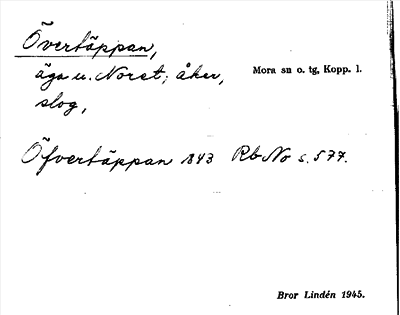 Övertäppan,
äga u. Noret; åker,
slog,
Mora sn o. tg, Kopp. l.
Öfvertäppan 1843 Rb No s. 577.
Bror Lindén 1945.